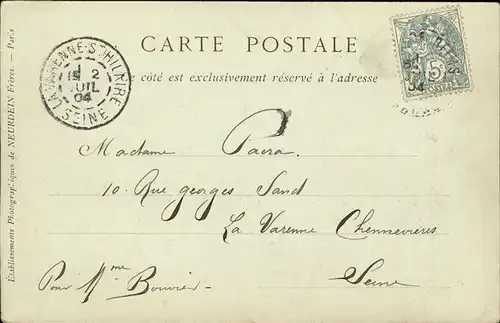 CARTE POSTALE
Ce côté est exclusivement réservé à l'adresse
LA VARENNE-ST-HILAIRE
2
JUIL
04
SEINE
5c
POSTES
04
Madame Pacra
10. Rue georges Sand
La Varenne Chennevières
Seine
Pour Mme Bouvier
Etablissements Photographiques de NEURDEIN Frères. — Paris